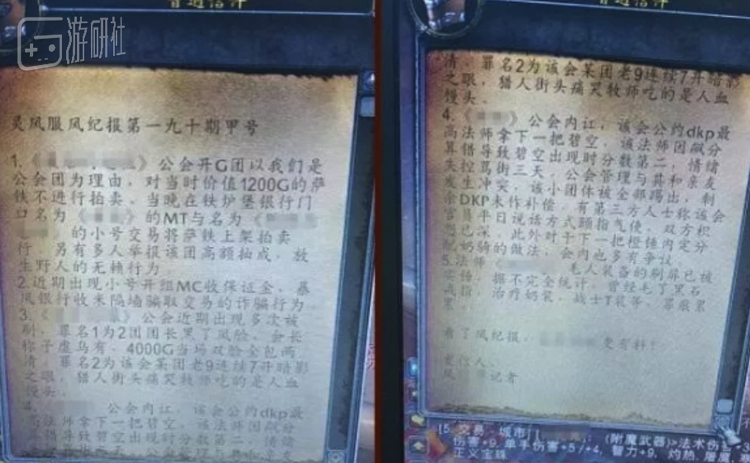 游研社
普通信件
灵风服风纪报第一九十期甲号
1.《 》公会开G团以我们是
公会团为理由，对当时价值1200G的萨
铁不进行拍卖。当晚在铁炉堡银行门
口名为《 》的MT与名为《
》的小号交易将萨铁上架拍卖
行，另有多人举报该团高额抽成，放
生野人的无赖行为
2.近期出现小号开组MC收保证金，暴
风银行收未隔墙骗取交易的诈骗行为
3.《 》公会近期出现多次被
刷，罪名1为2团团长黑了风脸。会长
称子虚乌有，4000G当场双脸全包两
清，罪名2为该会某团老9连续7开暗影
之眼，猎人街头痛哭牧师吃的是人血
馒头。
4. 公会内讧，该会公约dkp最
高法师拿下一把碧空，该法师因敌分
算错导致碧空出现时分数第二，情绪
普通信件
清，罪名2为该会某团老9连续7开暗影
之眼，猎人街头痛哭牧师吃的是人血
馒头。
4.《 》公会内讧，该会公约dkp最
高法师拿下一把碧空，该法师因敌分
算错导致碧空出现时分数第二，情绪
失控骂街三天，公会管理与其和亲友
发生冲突，该小团体被全部踢出，剩
余DKP未作补偿，有第三方人士称该会
官员平日说话方式颐指气使，双方积
怨已深，此外对于下一把橙锤内定分
配奶骑的做法，会内也多有争议
5.法师《 》毛人装备的刷屏已被
实锤，据不完全统计，曾经毛了黑石
戒指，治疗奶装，战士T装等，罪痕累
累。
看了风纪报， 更有料！
发信人：
风 记者
[5.交易-城市] (附魔武器)>法术伤
伤害+9，单手伤害+5/+4，智力+9，灼热，屠魔
正义宝珠